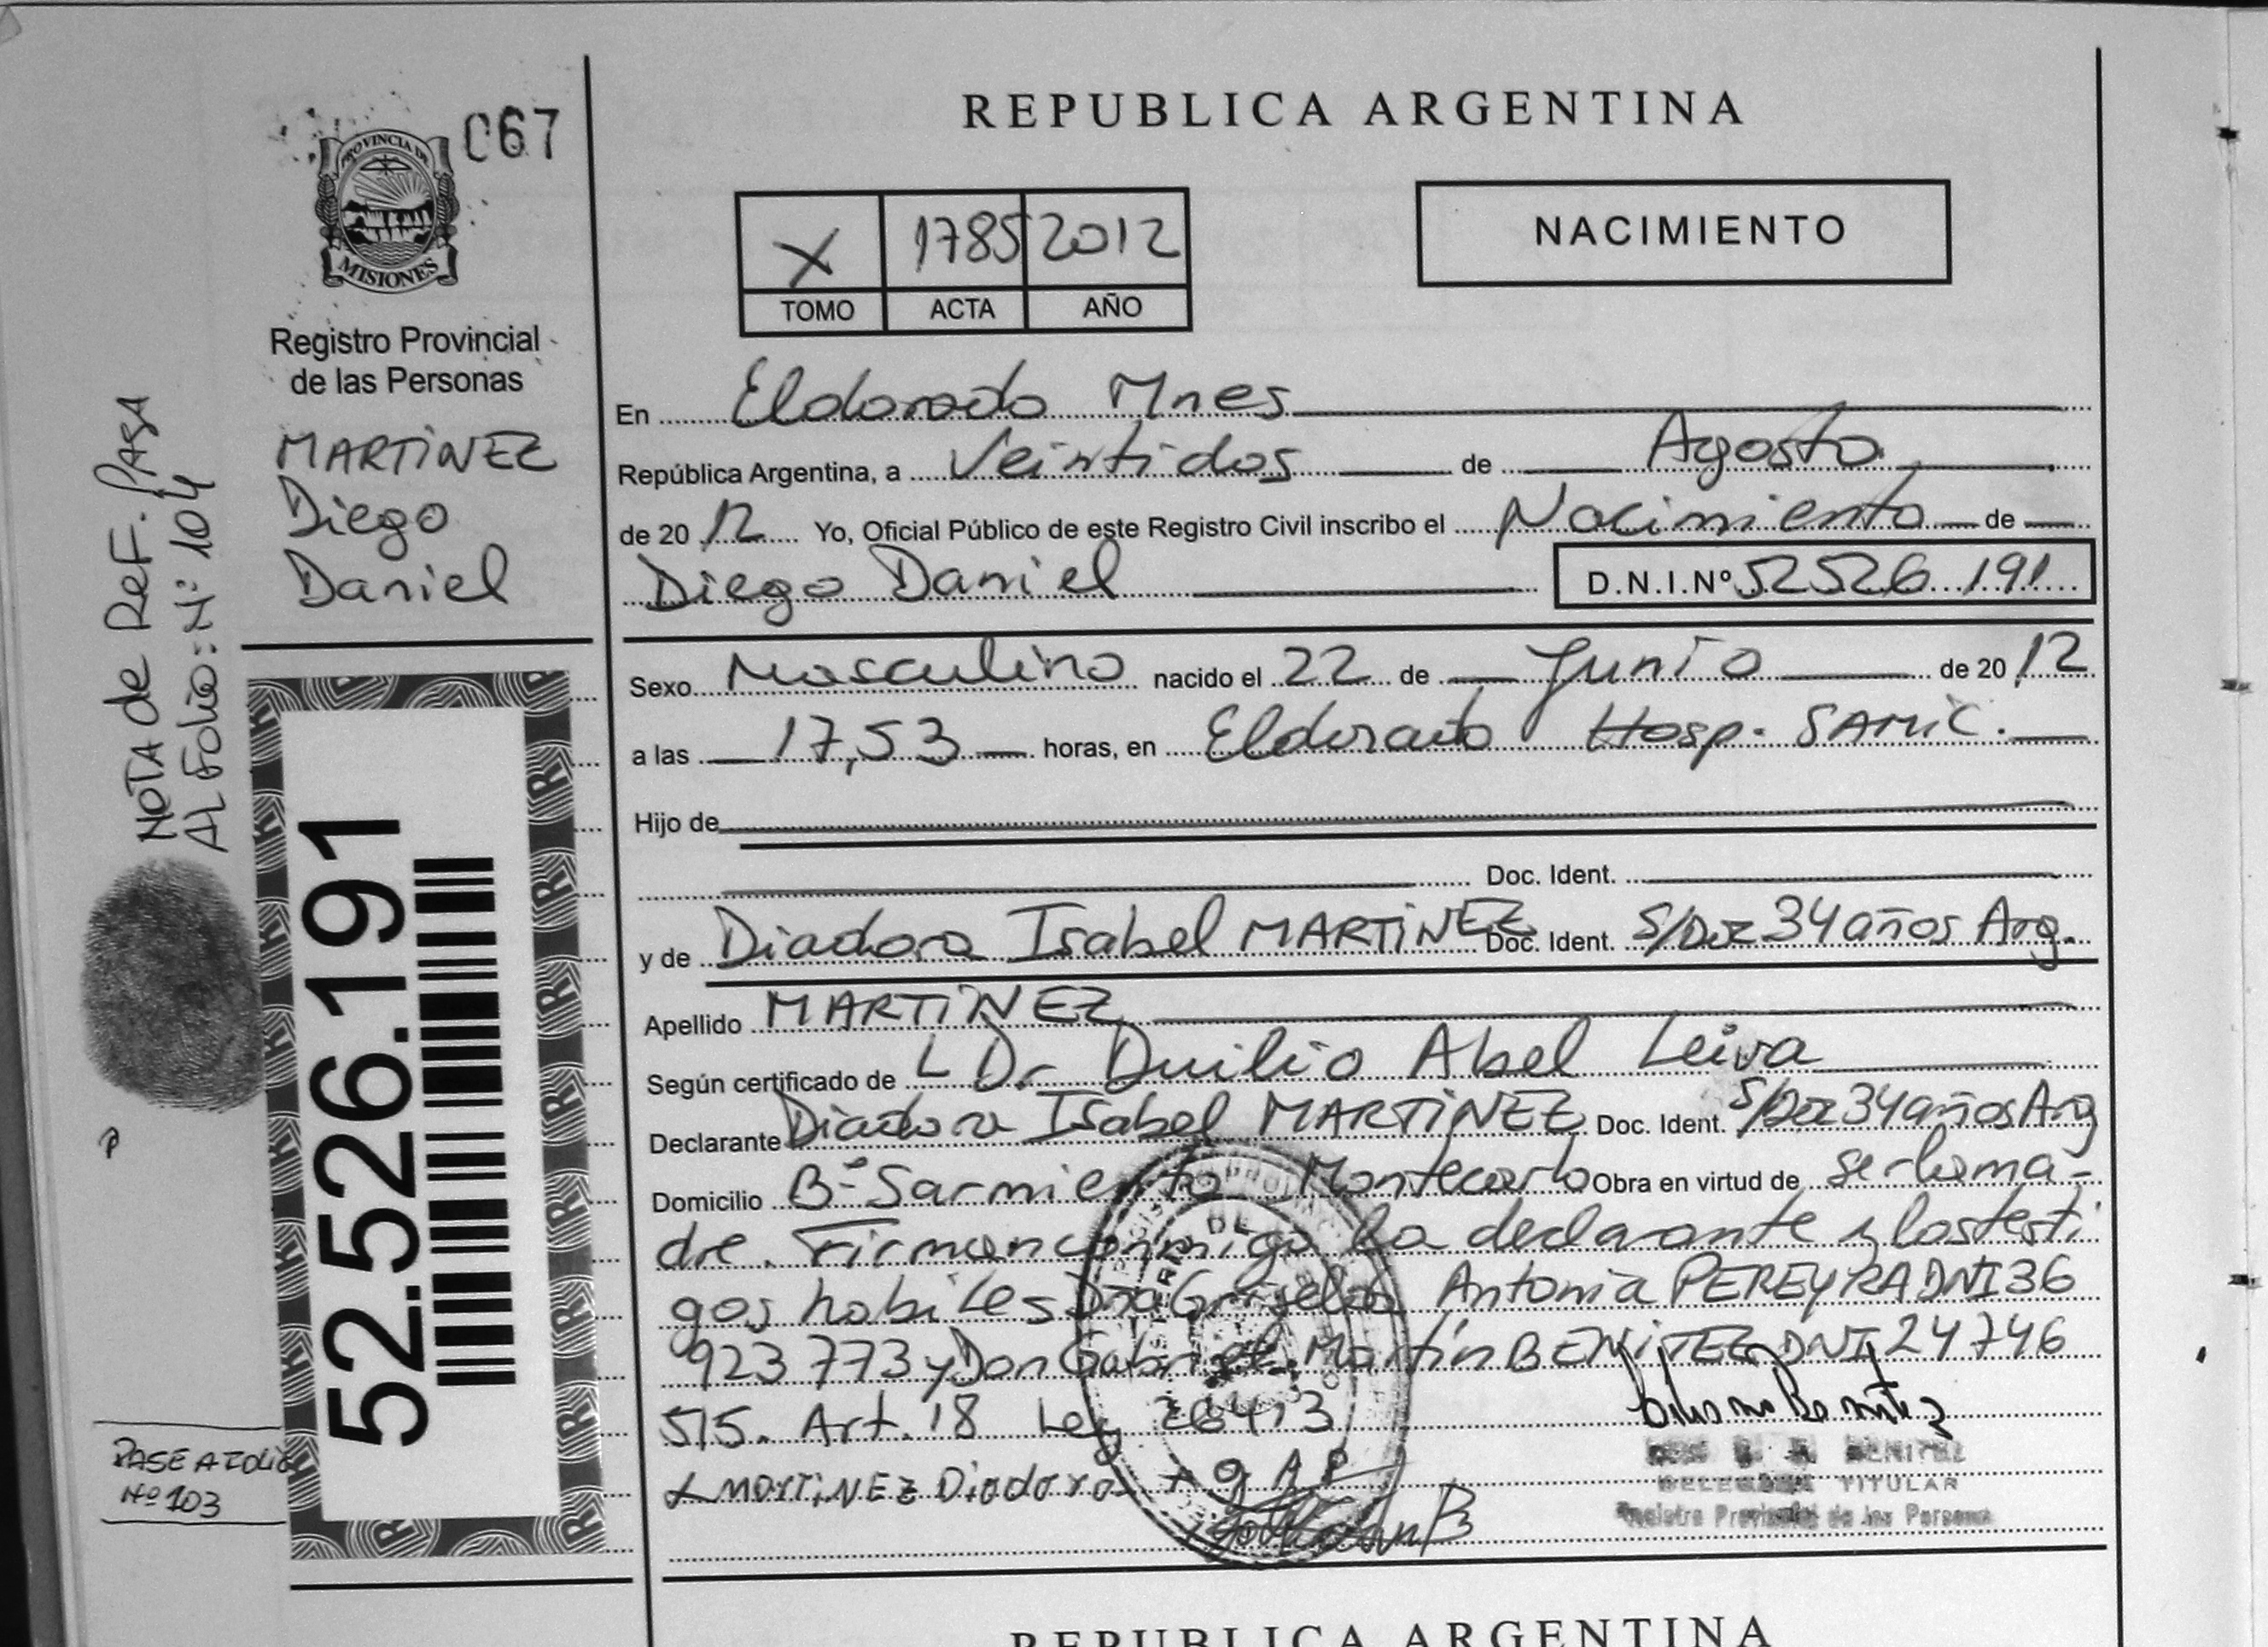 067
PROVINCIA DE
MISIONES
Registro Provincial
de las Personas
MARTINEZ
Diego
Daniel
NOTA de Ref. PASA
AL Folio: Nº 104
52.526.191
PASE A FOLIO
Nº 103
REPUBLICA ARGENTINA
X 1785 2012
TOMO ACTA AÑO
NACIMIENTO
En Eldorado Mnes
República Argentina, a Veintidos de Agosto
de 20 12 Yo, Oficial Público de este Registro Civil inscribo el Nacimiento de
Diego Daniel D.N.I.Nº 52526 191
Sexo Masculino nacido el 22 de Junio de 20 12
a las 17,53 horas, en Eldorado Hosp. SAMIC.
Hijo de
Doc. Ident.
y de Diadora Isabel MARTINEZ Doc. Ident. S/Doc 34 años Arg.
Apellido MARTINEZ
Según certificado de L Dr Duilio Abel Leiva
Declarante Diadora Isabel MARTINEZ Doc. Ident. S/Doc 34 años Arg
Domicilio Bº Sarmiento Montecarlo Obra en virtud de ser la ma-
dre. Firman conmigo la declarante y los testi
gos habiles Dña Griselda Antonia PEREYRA DNI 36
923 773 y Don Gabriel Martín BENITEZ DNI 24746
515. Art. 18 Ley 26413
MARTINEZ Diadora
BENITEZ
DELEGADA TITULAR
Registro Provincial de las Personas
REPUBLICA ARGENTINA